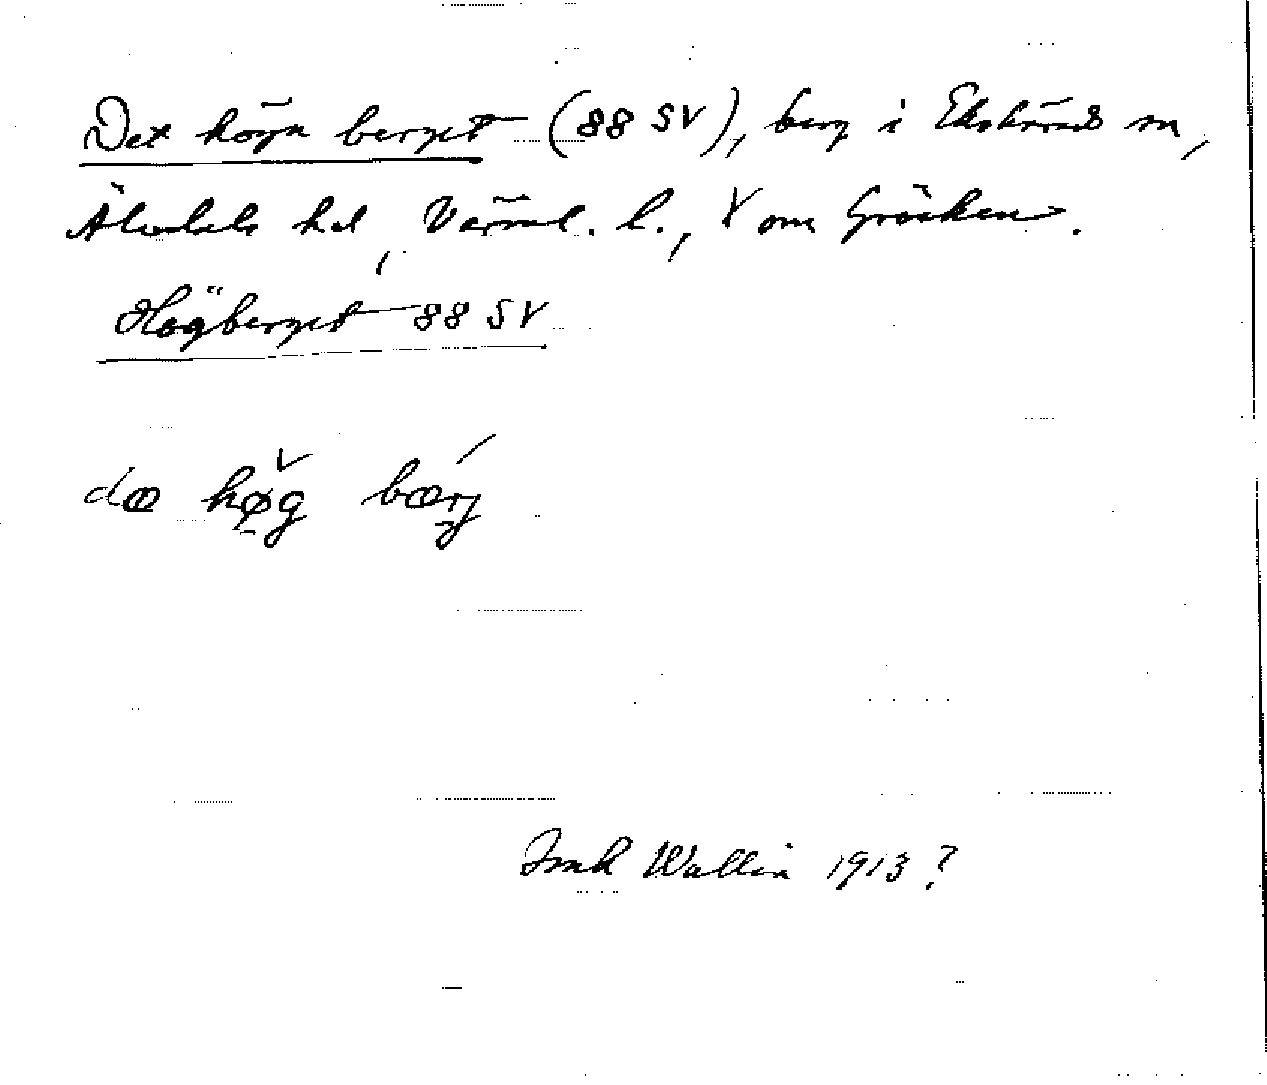 Det höga berget (88 SV), berg i Ekshärads sn,
Älvdals hd, Värml. l., V om Gräsken.
Högberget 88 SV
dæ høg bærj
Wallin 1913?